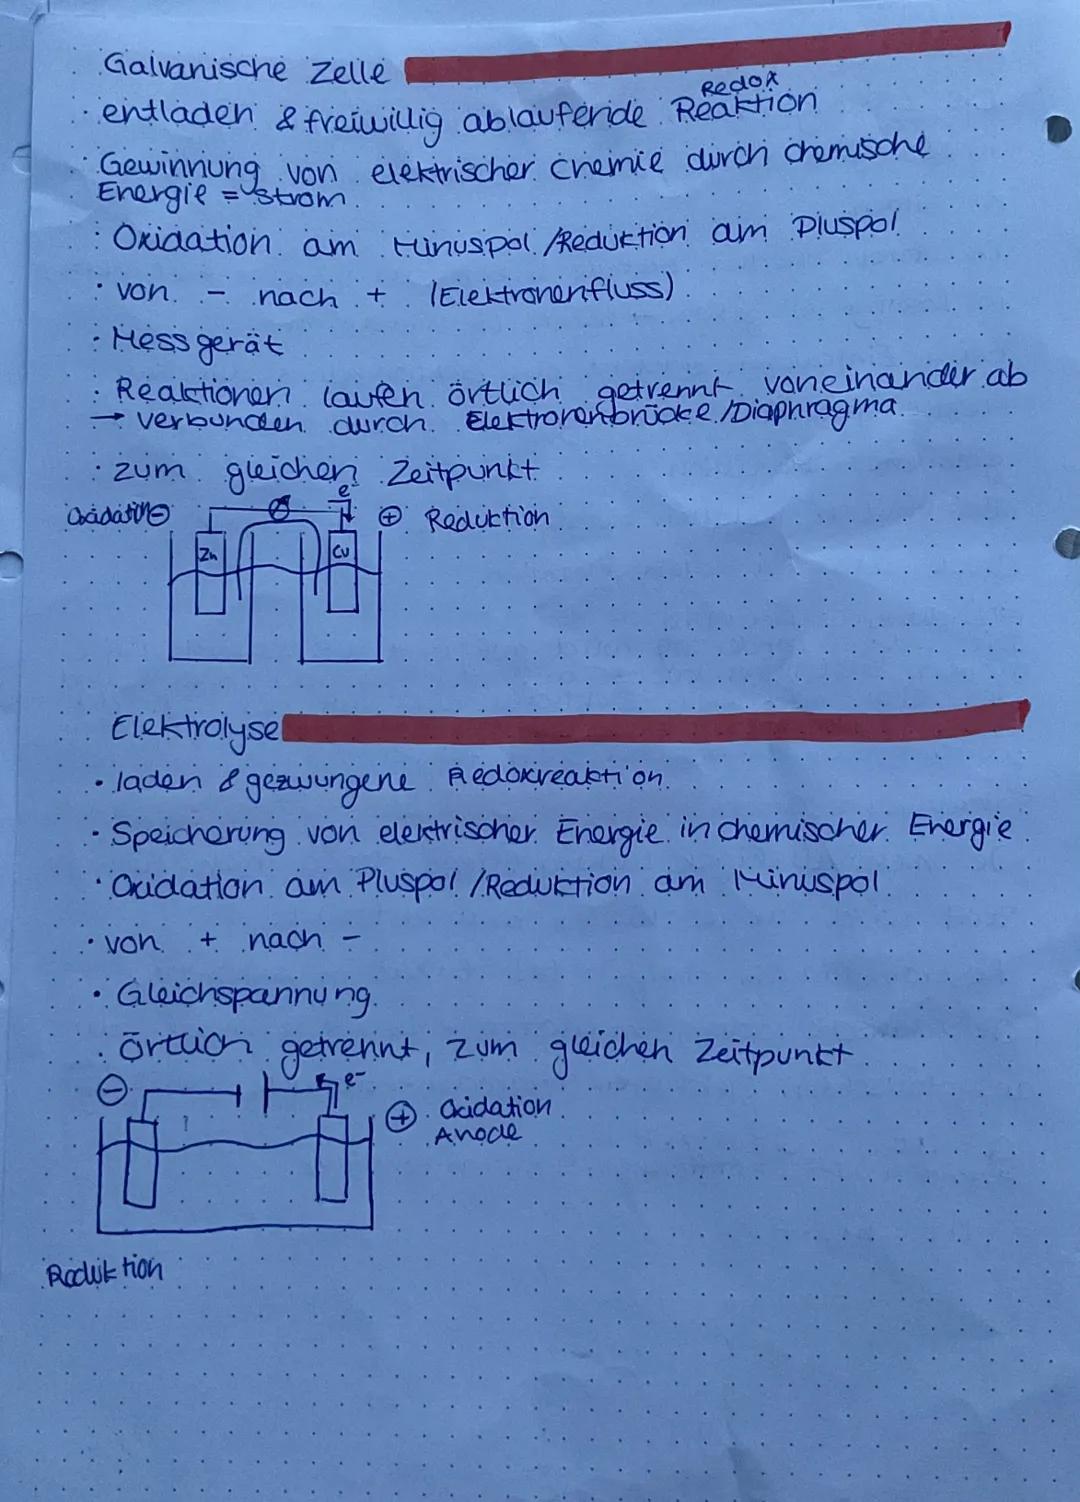 Galvanische Zelle
Redox
· entladen & freiwillig ablaufende Reaktion
· Gewinnung von elektrischer Chemie durch chemische
Energie = Strom
· Oxidation am Minuspol /Reduktion am Pluspol
· von - nach + (Elektronenfluss)
· Messgerät
· Reaktionen laufen örtlich getrennt voneinander ab
→ verbunden durch Elektronenbrücke/Diaphragma
· zum gleichen Zeitpunkt
e⁻
Oxidation ⊖ ⊕ Reduktion
Zn Cu
Elektrolyse
· laden & gezwungene Redoxreaktion
· Speicherung von elektrischer Energie in chemischer Energie
· Oxidation am Pluspol /Reduktion am Minuspol
· von + nach -
· Gleichspannung
· örtlich getrennt, zum gleichen Zeitpunkt
⊖ e⁻
⊕ Oxidation
Anode
Reduktion